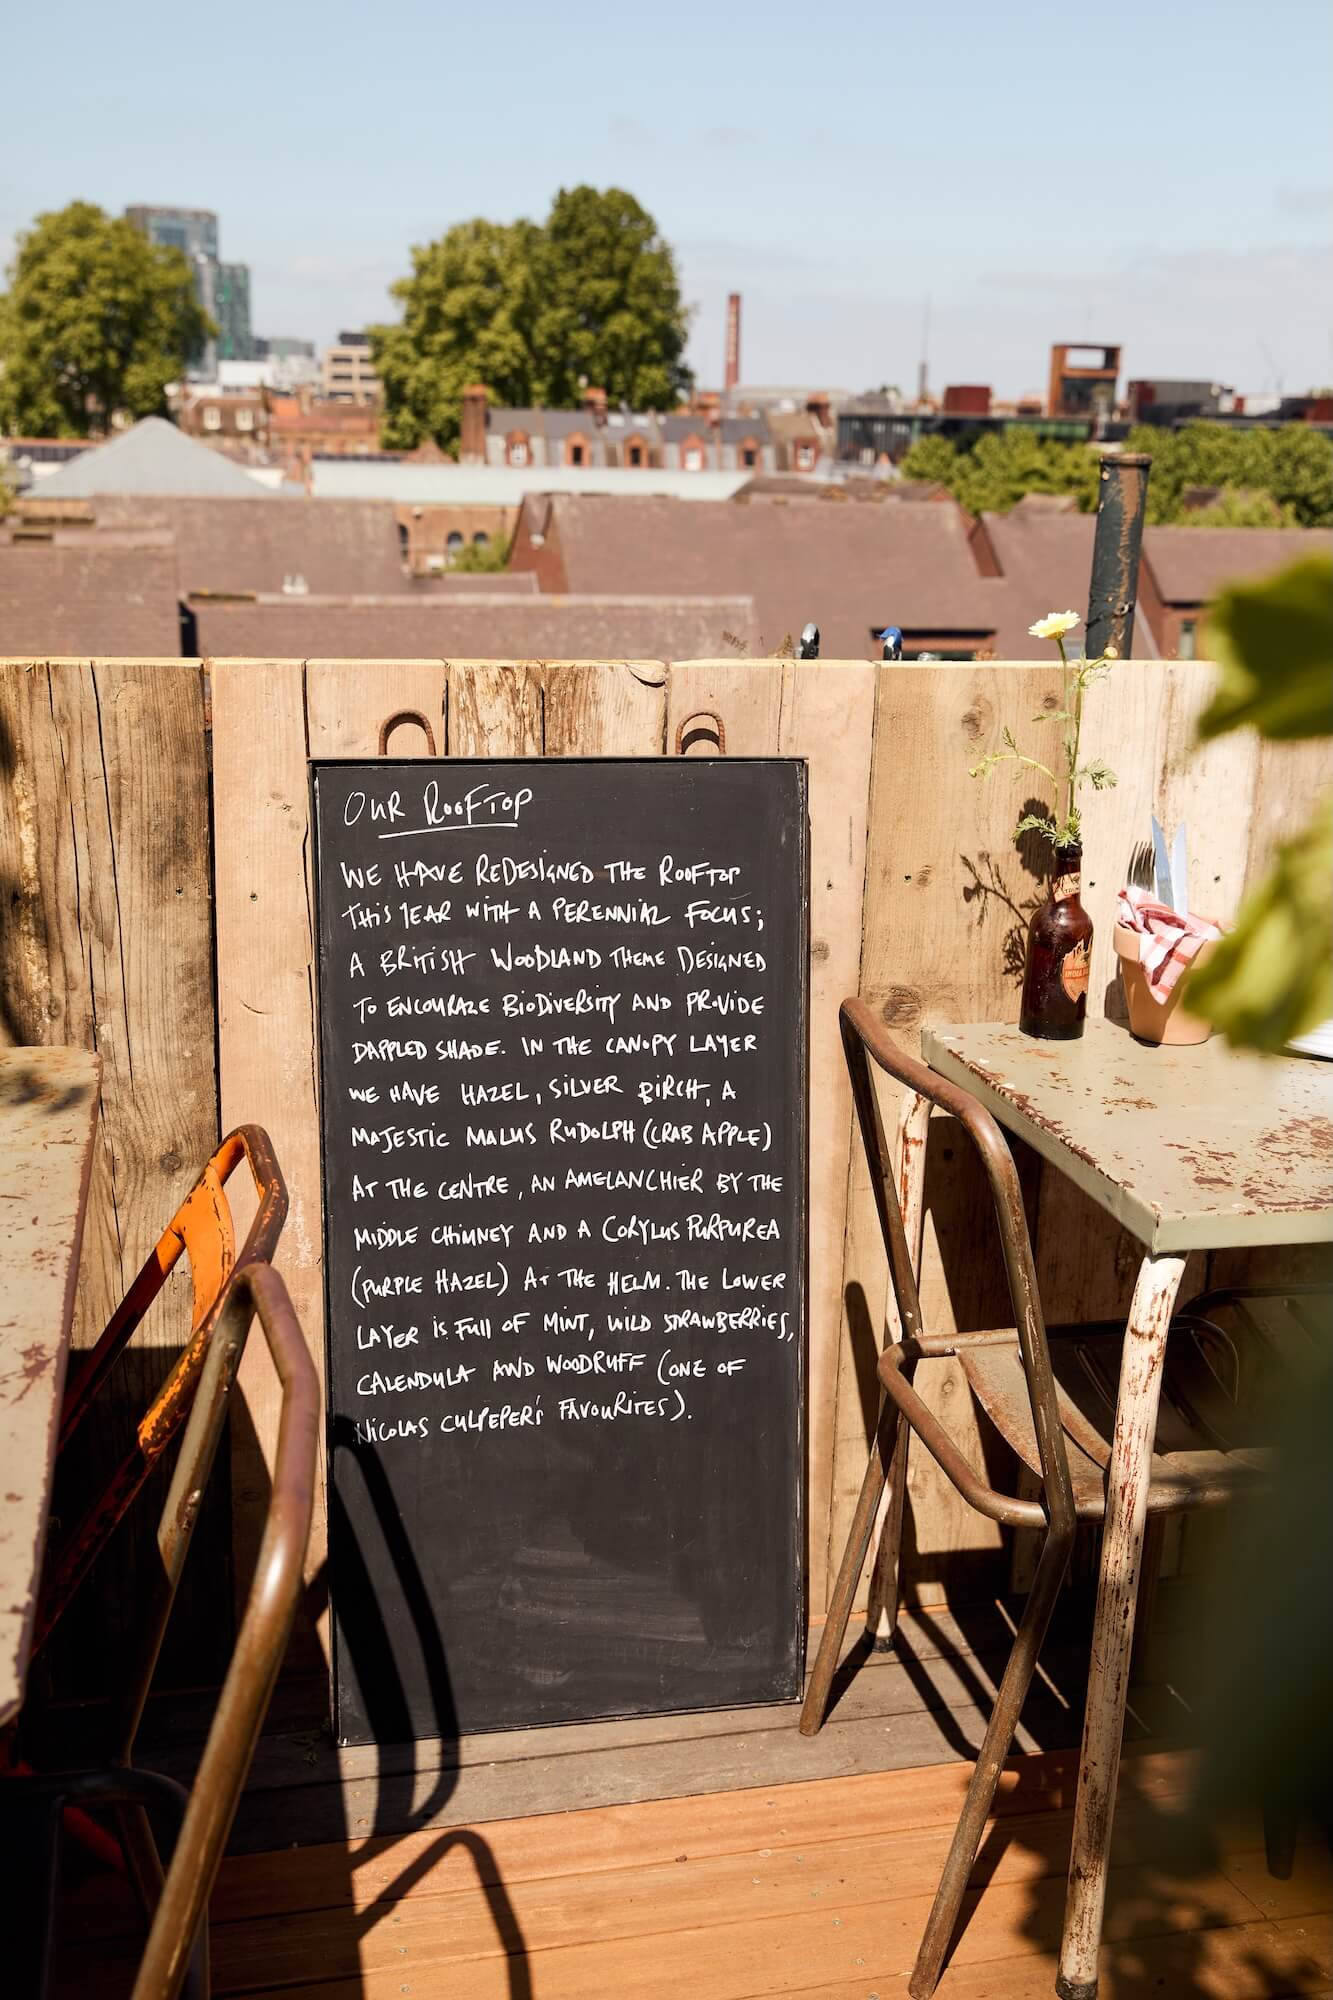 OUR ROOFTOP
WE HAVE REDESIGNED THE ROOFTOP
THIS YEAR WITH A PERENNIAL FOCUS;
A BRITISH WOODLAND THEME DESIGNED
TO ENCOURAGE BIODIVERSITY AND PROVIDE
DAPPLED SHADE. IN THE CANOPY LAYER
WE HAVE HAZEL, SILVER BIRCH, A
MAJESTIC MALUS RUDOLPH (CRAB APPLE)
AT THE CENTRE, AN AMELANCHIER BY THE
MIDDLE CHIMNEY AND A CORYLUS PURPUREA
(PURPLE HAZEL) AT THE HELM. THE LOWER
LAYER IS FULL OF MINT, WILD STRAWBERRIES,
CALENDULA AND WOODRUFF (ONE OF
NICOLAS CULPEPER'S FAVOURITES).
INDIA